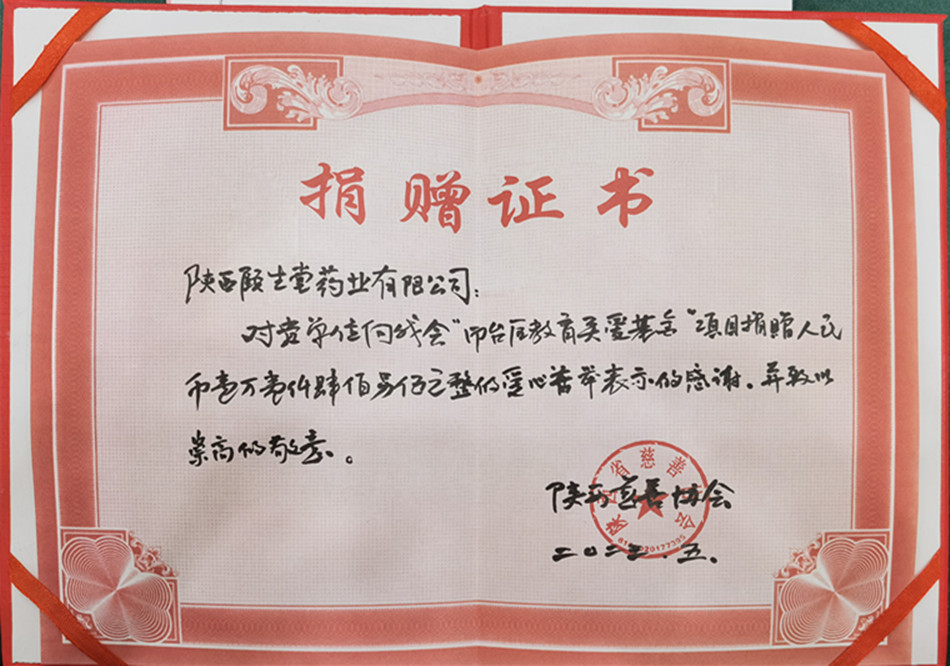 捐赠证书
陕西颐生堂药业有限公司:
对贵单位向我会“ 教育关爱基金”项目捐赠人民
币壹万壹仟肆佰 伍元整的爱心善举表示 感谢。并致以
崇高的敬意。
陕西省慈善协会
陕西慈善协会
二〇二三.五.